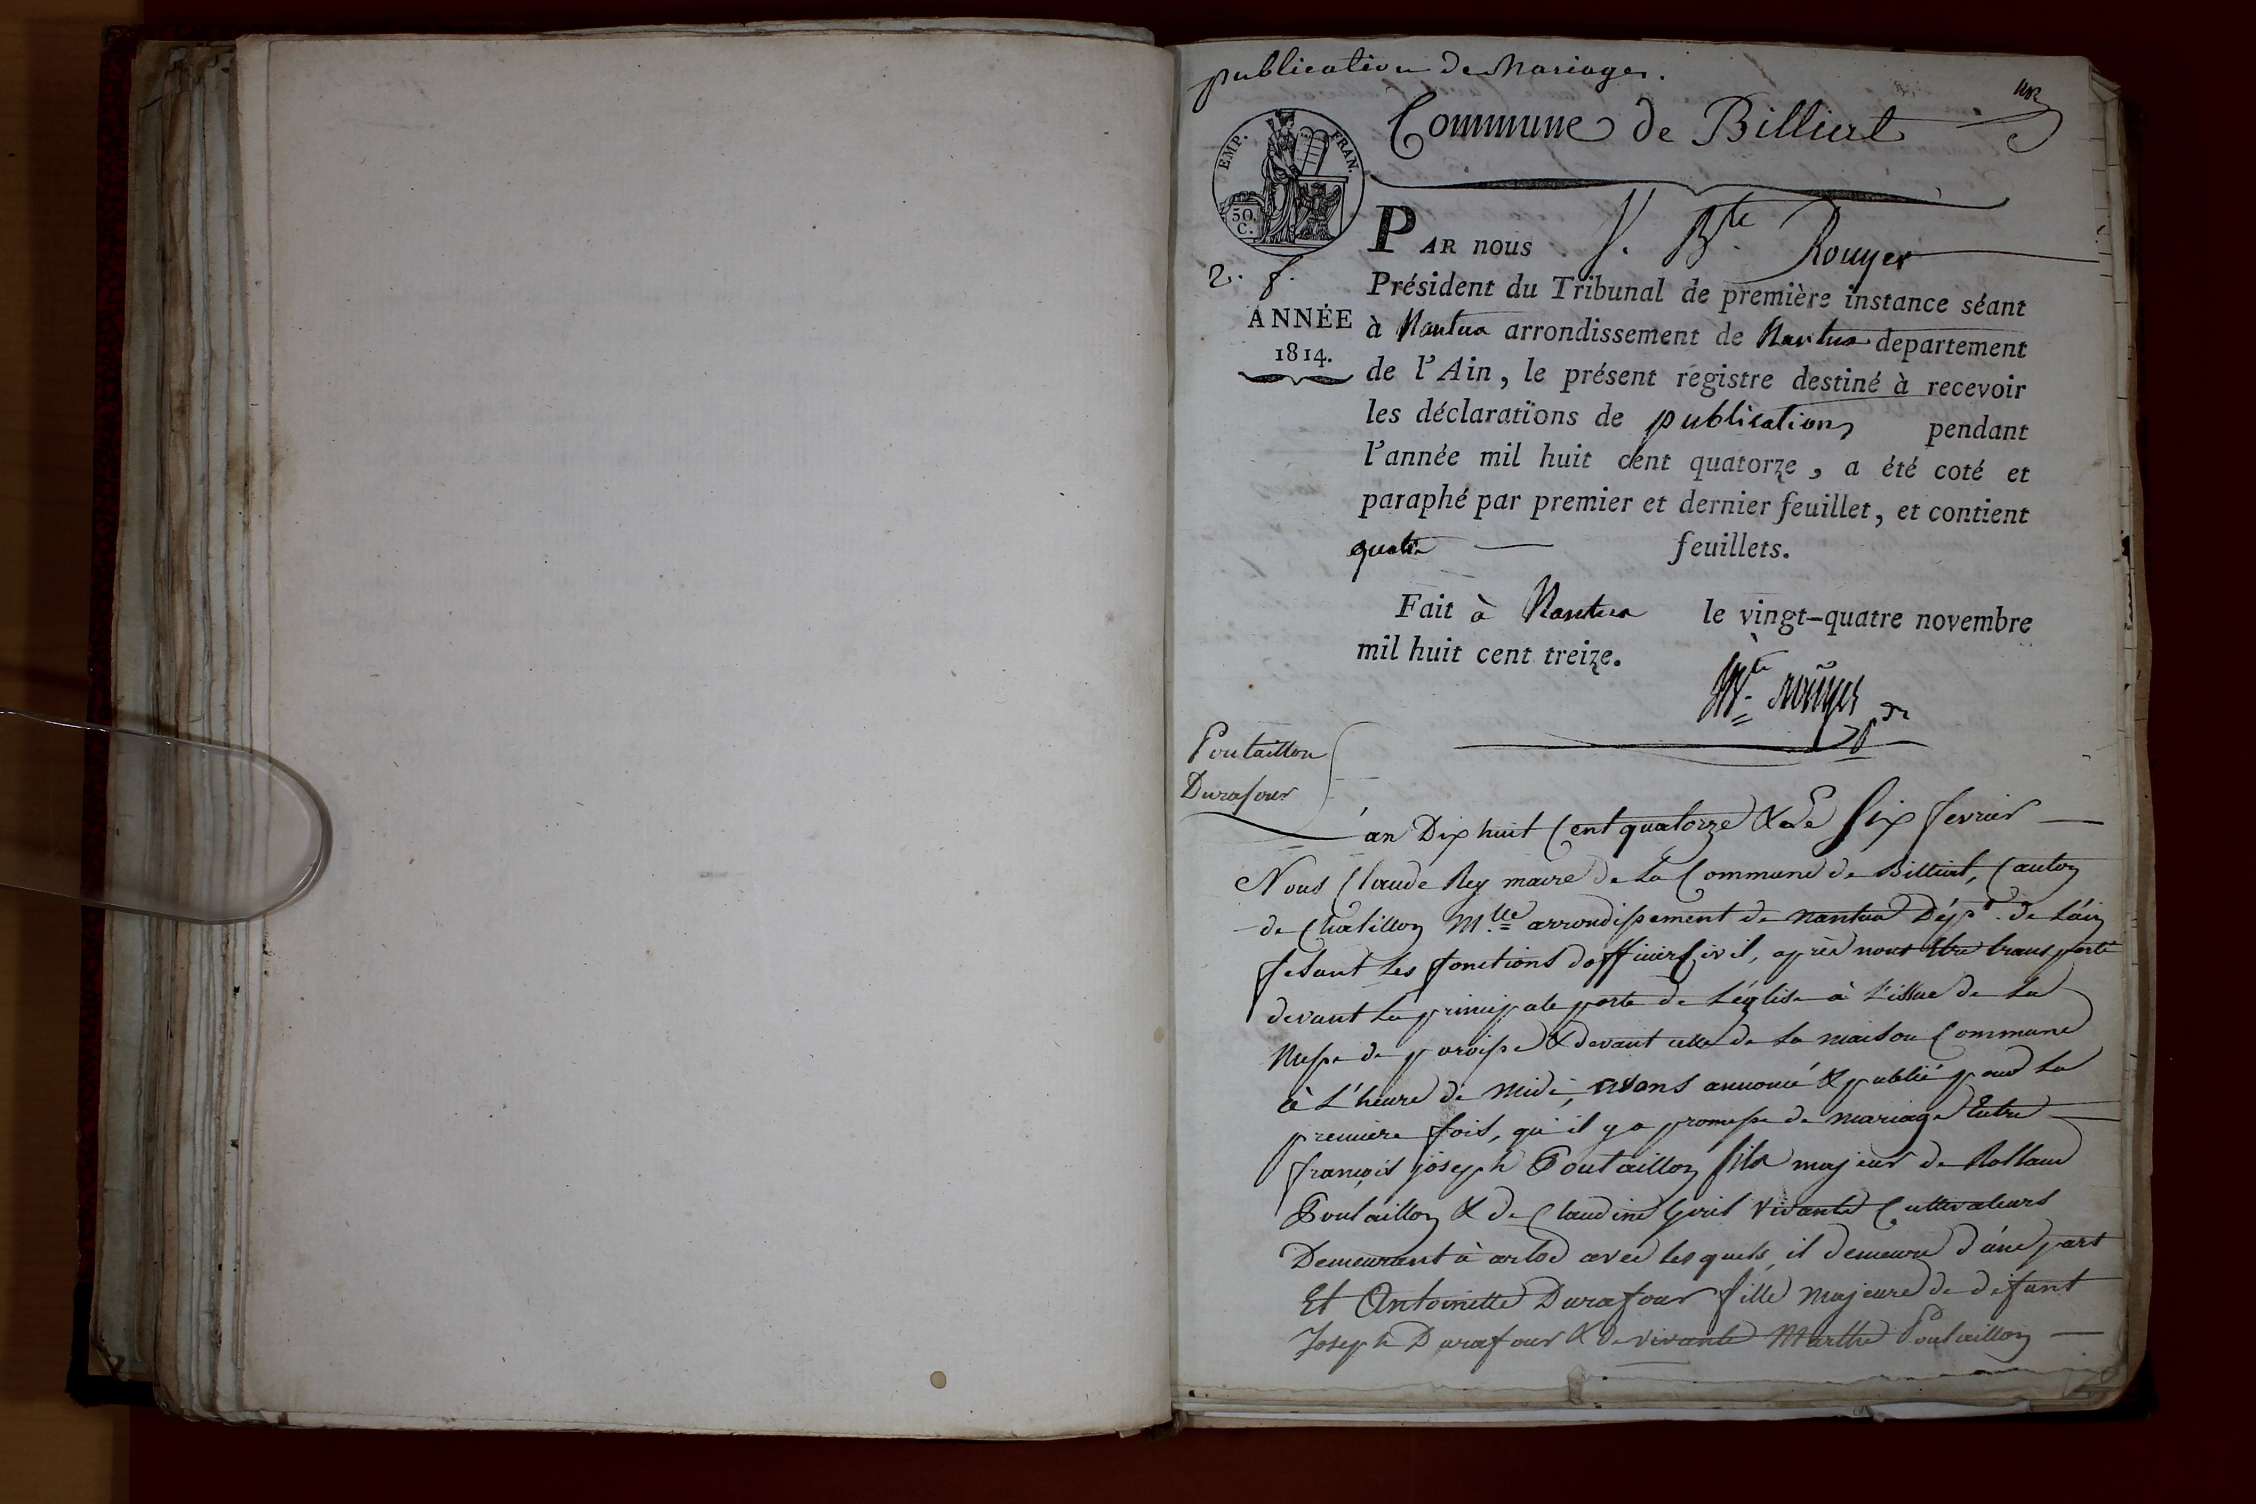 publication de Mariages.
Commune de Billiat
EMP. FRAN.
30. C.
PAR nous J. Bte Rouyer
2. f.
Président du Tribunal de première instance séant
ANNÉE
1814.
à Nantua arrondissement de Nantua departement
de l'Ain, le présent registre destiné à recevoir
les déclarations de publications pendant
l'année mil huit cent quatorze, a été coté et
paraphé par premier et dernier feuillet, et contient
quatre feuillets.
Fait à Nantua le vingt-quatre novembre
mil huit cent treize.
Bte rouyer
Poutaillon
Durafour
an Dix huit Cent quatorze & le Six fevrier
Nous Claude Rey maire de la Commune de Billiat, Canton
de Chatillon Mlle arrondissement de nantua Dépt. de L'ain
fesant les fonctions dofficier Civil, après nous être transporté
devant la principale porte de L'église à L'issue de La
Messe de paroisse & devant celle de La maison Commune
à L'heure de Midi, avons annoncé & publié pour La
premiere fois, qu'il y a promesse de mariage Entre
françois joseph Poutaillon fils majeur de Rolland
Poutaillon & de Claudine Goris vivants Cultivateurs
Demeurant à arlod avec lesquels, il demeure d'une part
Et Antoinette Durafour fille Majeure de défunt
Joseph Durafour & de vivante Marthe Poutaillon